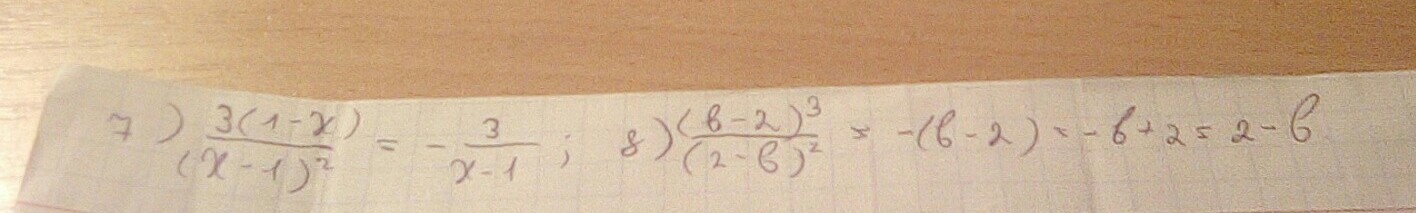 7) \frac{3(1-x)}{(x-1)^2} = -\frac{3}{x-1}; 8) \frac{(b-2)^3}{(2-b)^2} = -(b-2) = -b+2 = 2-b